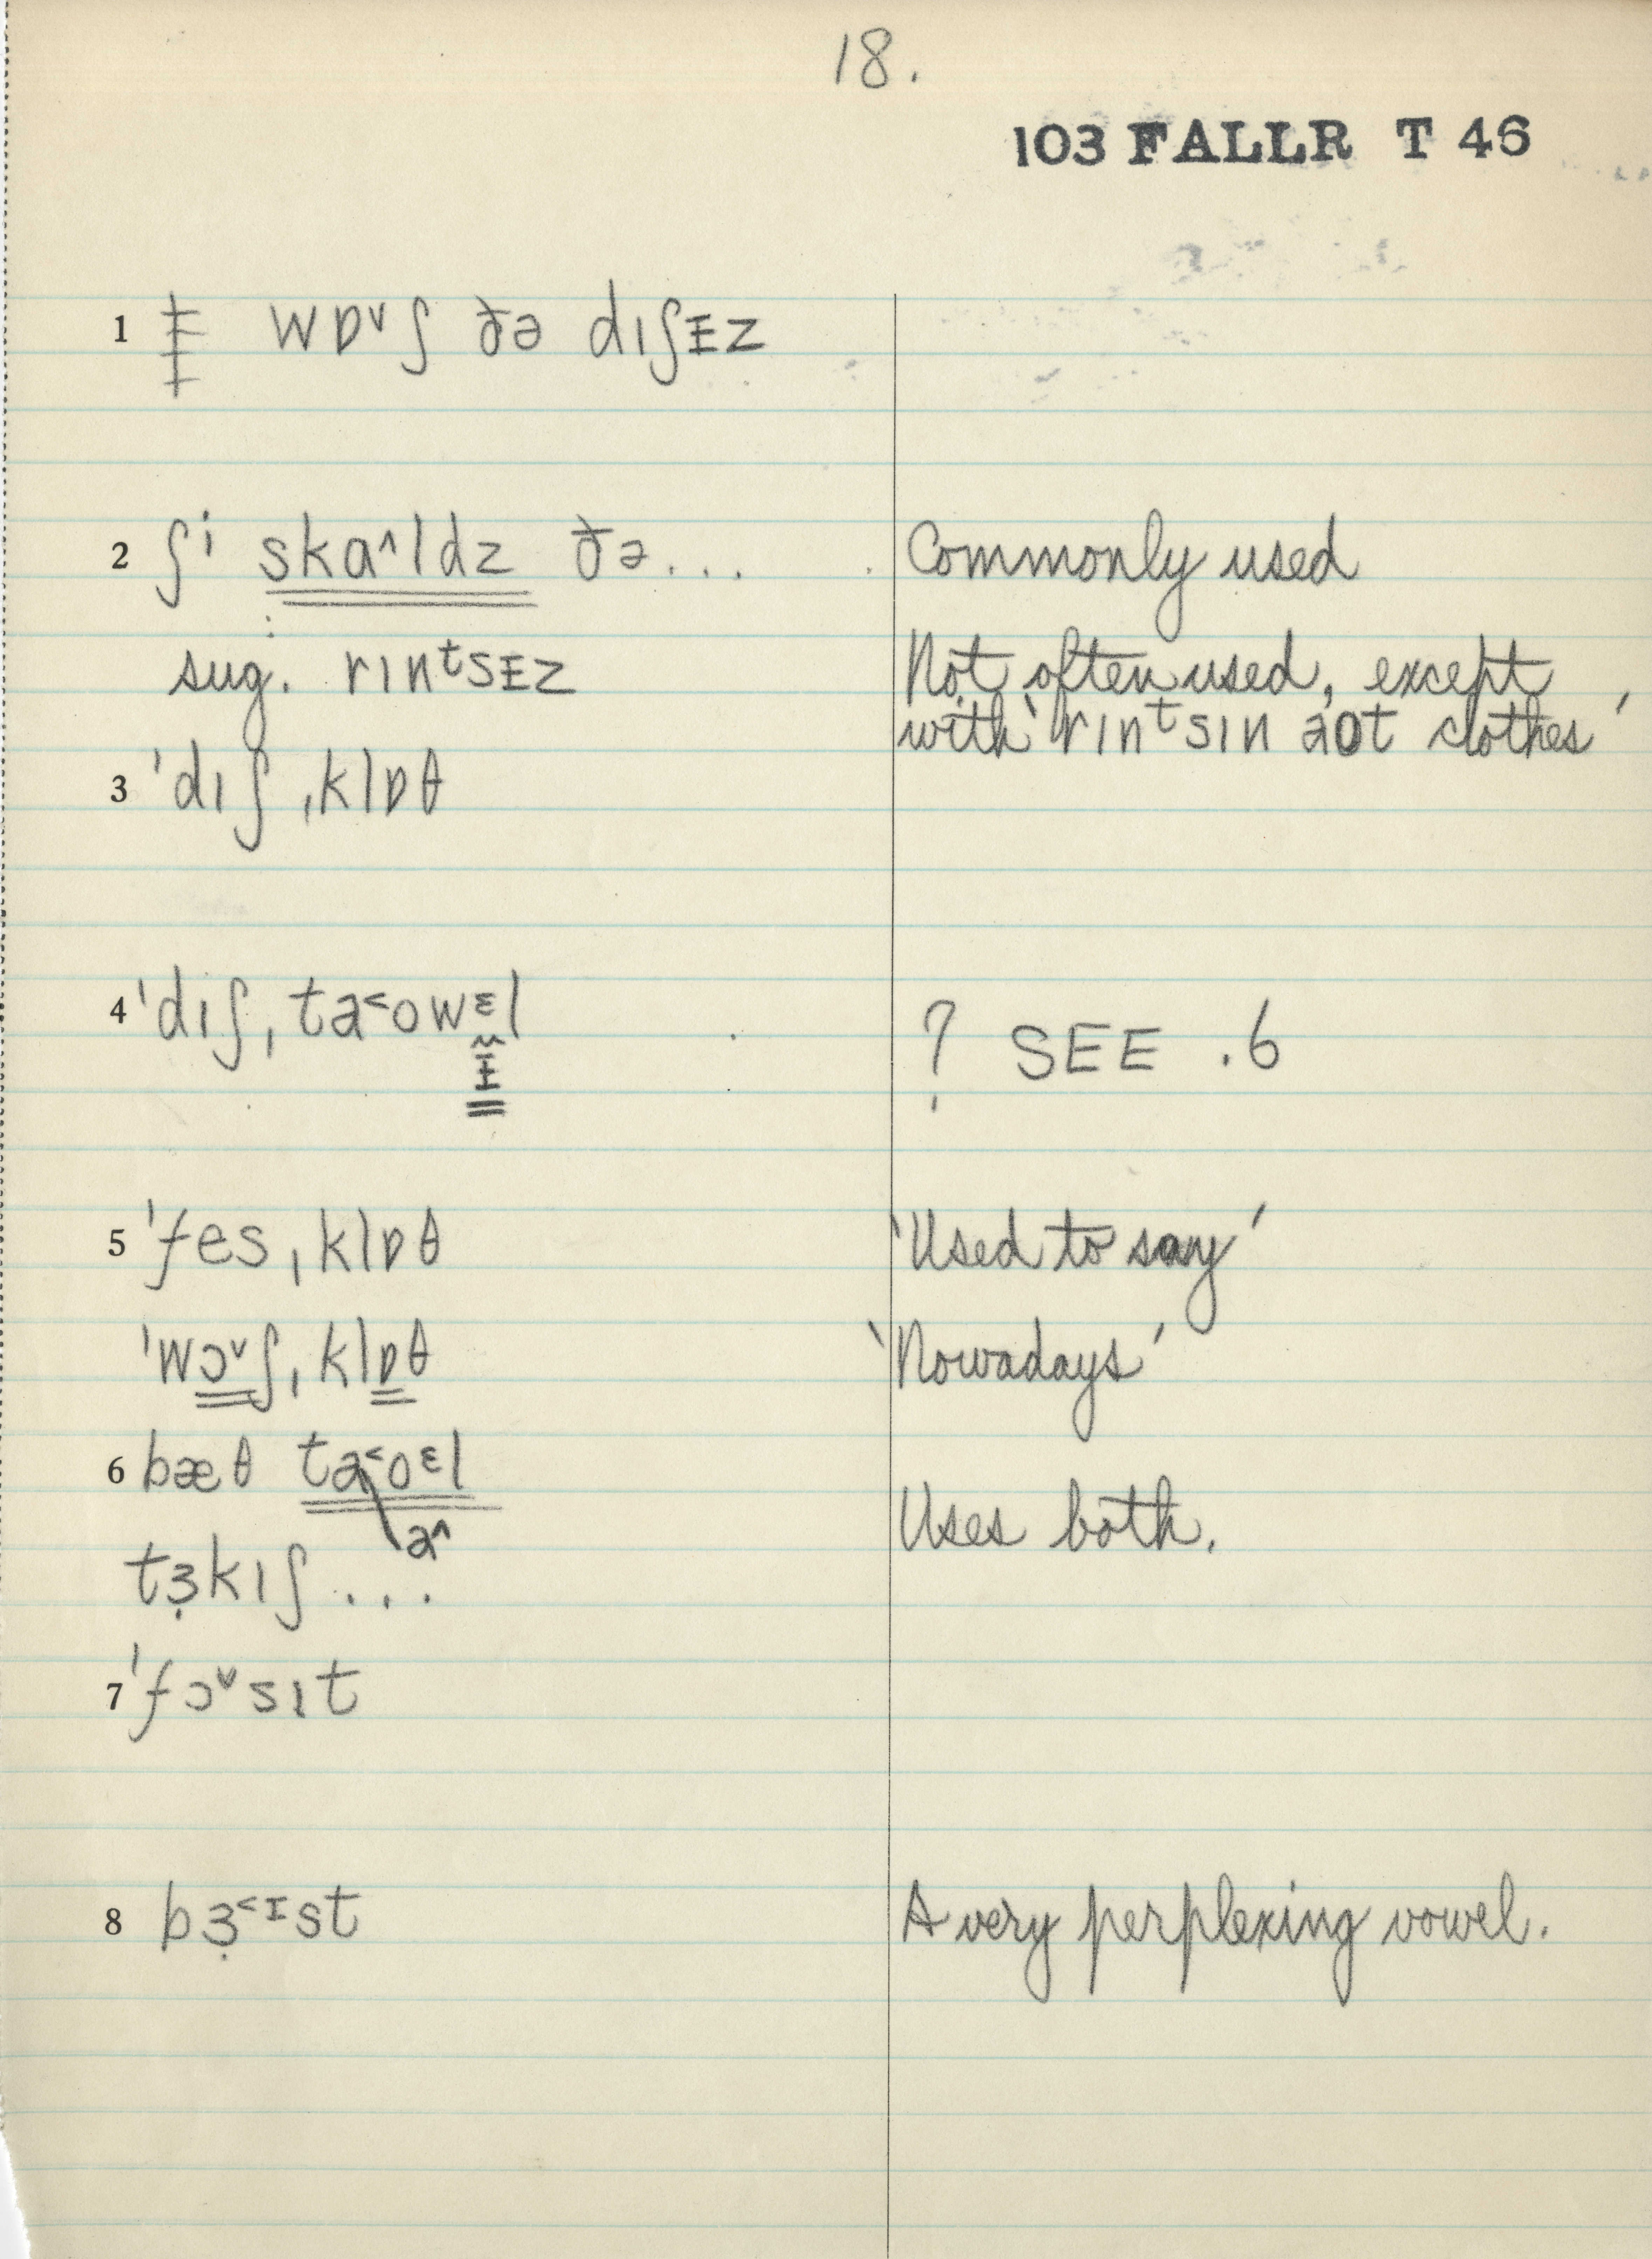 18.
103 FALLR T 46
1 ǂ wɒ˅ʃ ðə dıʃᵻz
2 ʃi skɑ˄ldz ðə... Commonly used
sug. rınᵗsᵻz Not often used, except
with ‘rınᵗsın aot clothes’
3 ˈdıʃˌklɒθ
4 ˈdıʃˌta˂owᵋl ? SEE .6
ᵻ
5 ˈfesˌklɒθ ‘Used to say’
ˈwɔ˅ʃˌklɒθ ‘Nowadays’
6 bæθ ta˂oᵋl
a˄
tɜ̣kıʃ ... Uses both.
7 ˈfɔ˅sıt
8 bɜ̣˂ᶦst A very perplexing vowel.